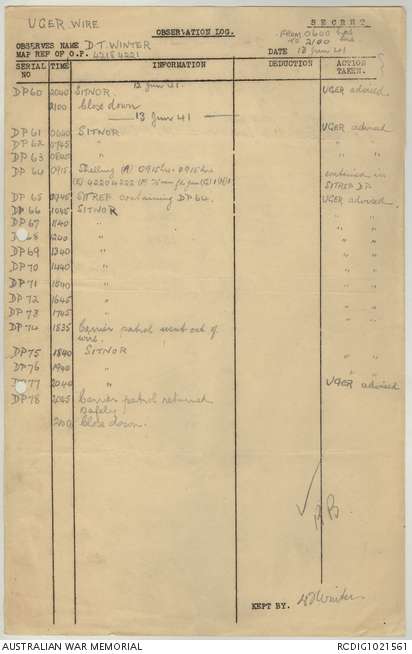 UGER WIRE
SECRET
OBSERVATION LOG.
FROM 0600 hrs
TO 2100 hrs
OBSERVES NAME D.T. WINTER
MAP REF OF O.P. 42184221
DATE 13 Jun 41
SERIAL NO TIME INFORMATION DEDUCTION ACTION TAKEN.
12 Jun 41.
DP60 2040 SITNOR. UGER advised
2100 Close down
13 Jun 41
DP61 0640 SITNOR. UGER advised
DP62 0745 " "
DP63 0840 " "
DP64 0915 Shelling (A) 0915 hrs - 0915 hrs contained in
42204222 SITREP DP
DP65 0945 SITREP containing DP64. UGER advised.
DP66 1045 SITNOR " "
DP67 1140 " "
DP68 1240 " "
DP69 1340 " "
DP70 1440 " "
DP71 1540 " "
DP72 1645 " "
DP73 1745 " "
DP74 1835 Carrier patrol went out of " "
wire.
DP75 1840 SITNOR " "
DP76 1940 " "
DP77 2040 " UGER advised
DP78 2045 Carrier patrol returned
safely
2100 Close down.
KEPT BY. DTWinter
AUSTRALIAN WAR MEMORIAL RCDIG1021561